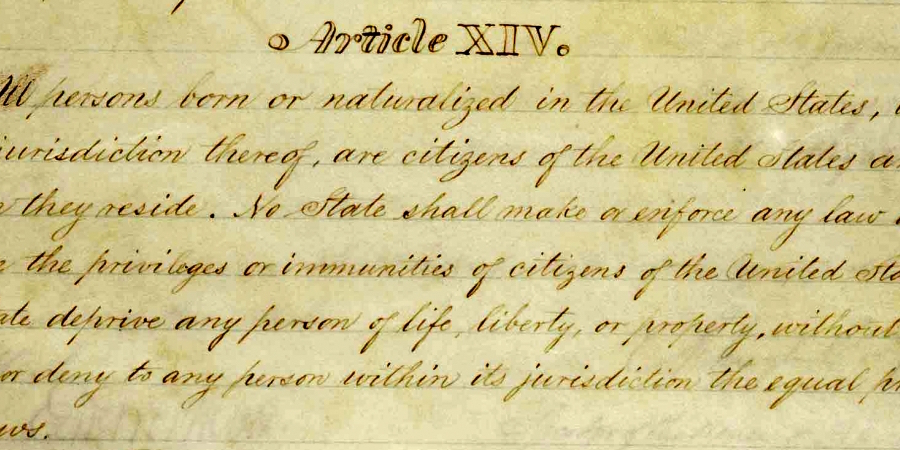 Article XIV.
All persons born or naturalized in the United States,
jurisdiction thereof, are citizens of the United States
they reside. No State shall make or enforce any law
the privileges or immunities of citizens of the United
deprive any person of life, liberty, or property, without
or deny to any person within its jurisdiction the equal